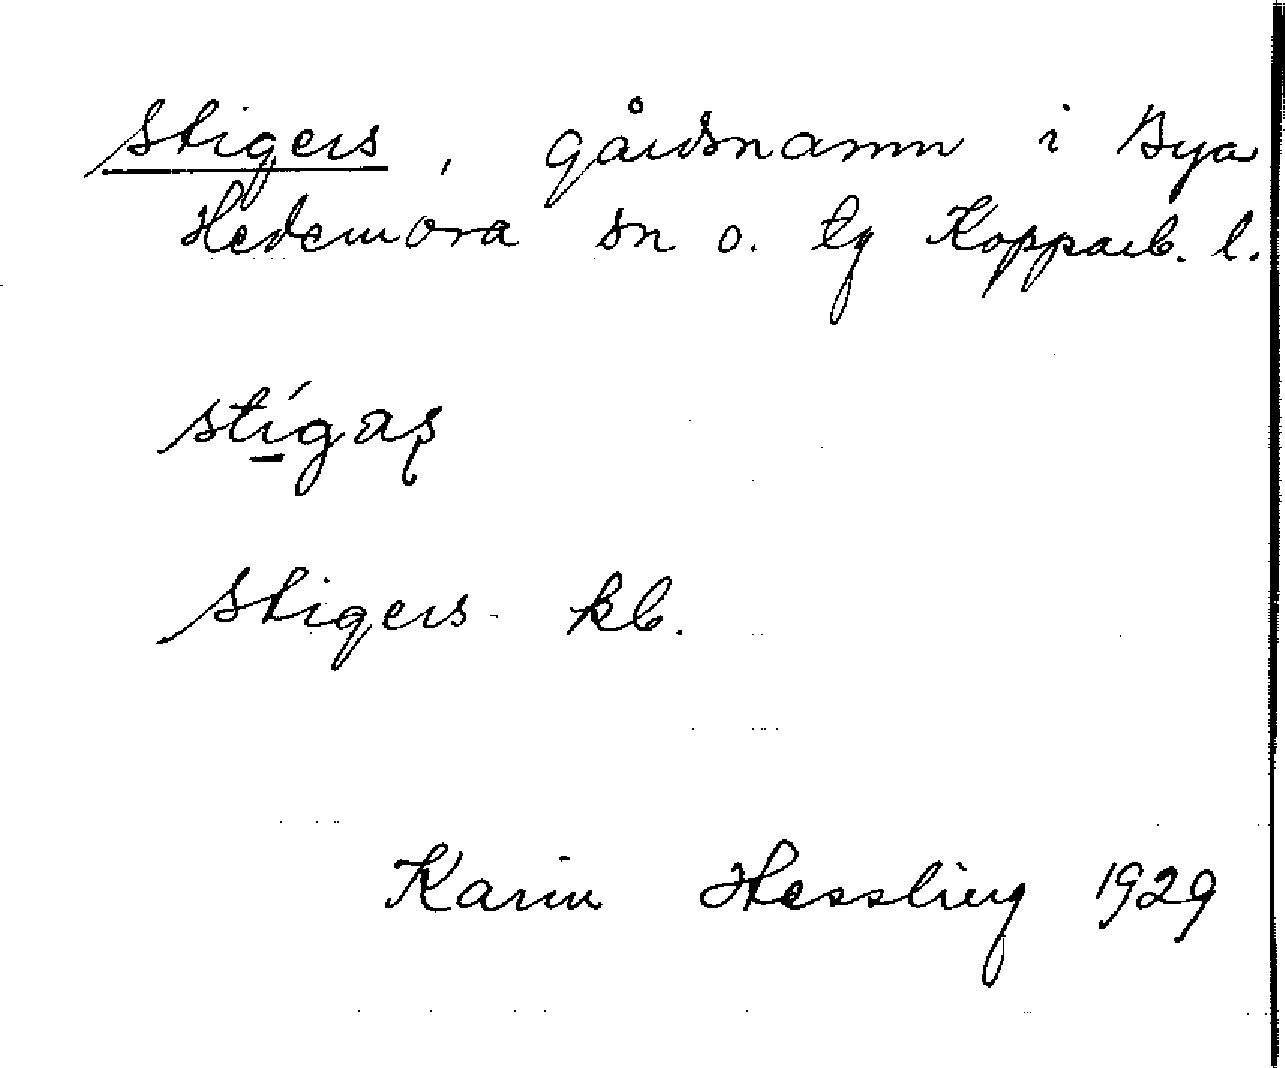 Stigers, gårdsnamn i Bya
Hedemora sn o. tg Kopparb. l.
stígaş
Stigers kb.
Karin Hessling 1929